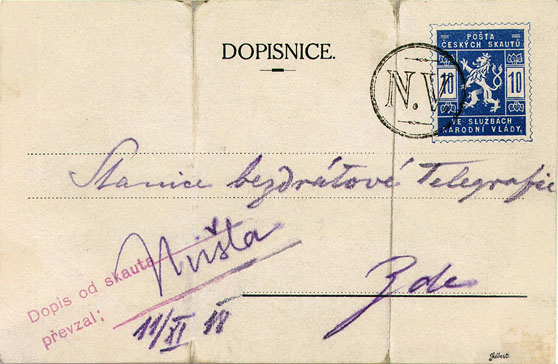 DOPISNICE.
POŠTA
ČESKÝCH SKAUTŮ
10 10
VE SLUŽBÁCH
NÁRODNÍ VLÁDY.
N.V.
Stanice bezdrátové Telegrafie
Zde
Dopis od skauta
převzal:
11/XI 18